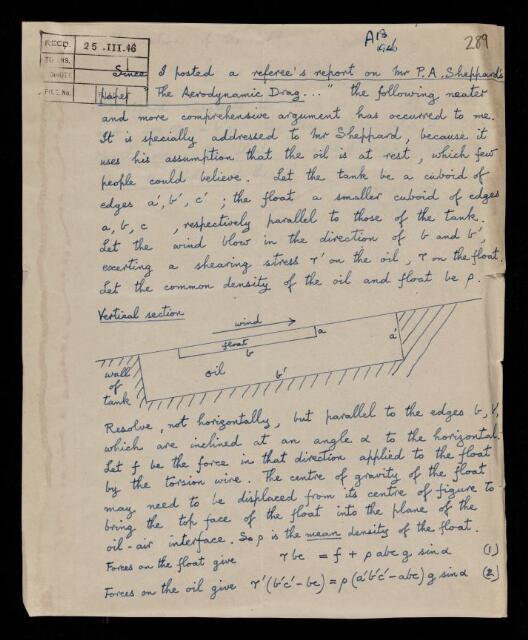 AB
1946
289
RECD. 25.III.46
TO INS.
FILE No.
Since I posted a referee's report on Mr P.A. Sheppard's
paper "The Aerodynamic Drag..." the following neater
and more comprehensive argument has occurred to me.
It is specially addressed to Mr Sheppard, because it
uses his assumption that the oil is at rest, which few
people could believe. Let the tank be a cuboid of
edges a', b', c' ; the float a smaller cuboid of edges
a, b, c , respectively parallel to those of the tank.
Let the wind blow in the direction of b and b',
exerting a shearing stress τ' on the oil, τ on the float.
Let the common density of the oil and float be ρ.
Vertical section
wind
float
a
a'
b
wall
of
tank
oil
b'
Resolve, not horizontally, but parallel to the edges b, b',
which are inclined at an angle α to the horizontal.
Let f be the force in that direction applied to the float
by the torsion wire. The centre of gravity of the float
may need to be displaced from its centre of figure to
bring the top face of the float into the plane of the
oil-air interface. So ρ is the mean density of the float.
Forces on the float give τ bc = f + ρ abc g sin α (1)
Forces on the oil give τ'(b'c' - bc) = ρ(a'b'c' - abc) g sin α (2)